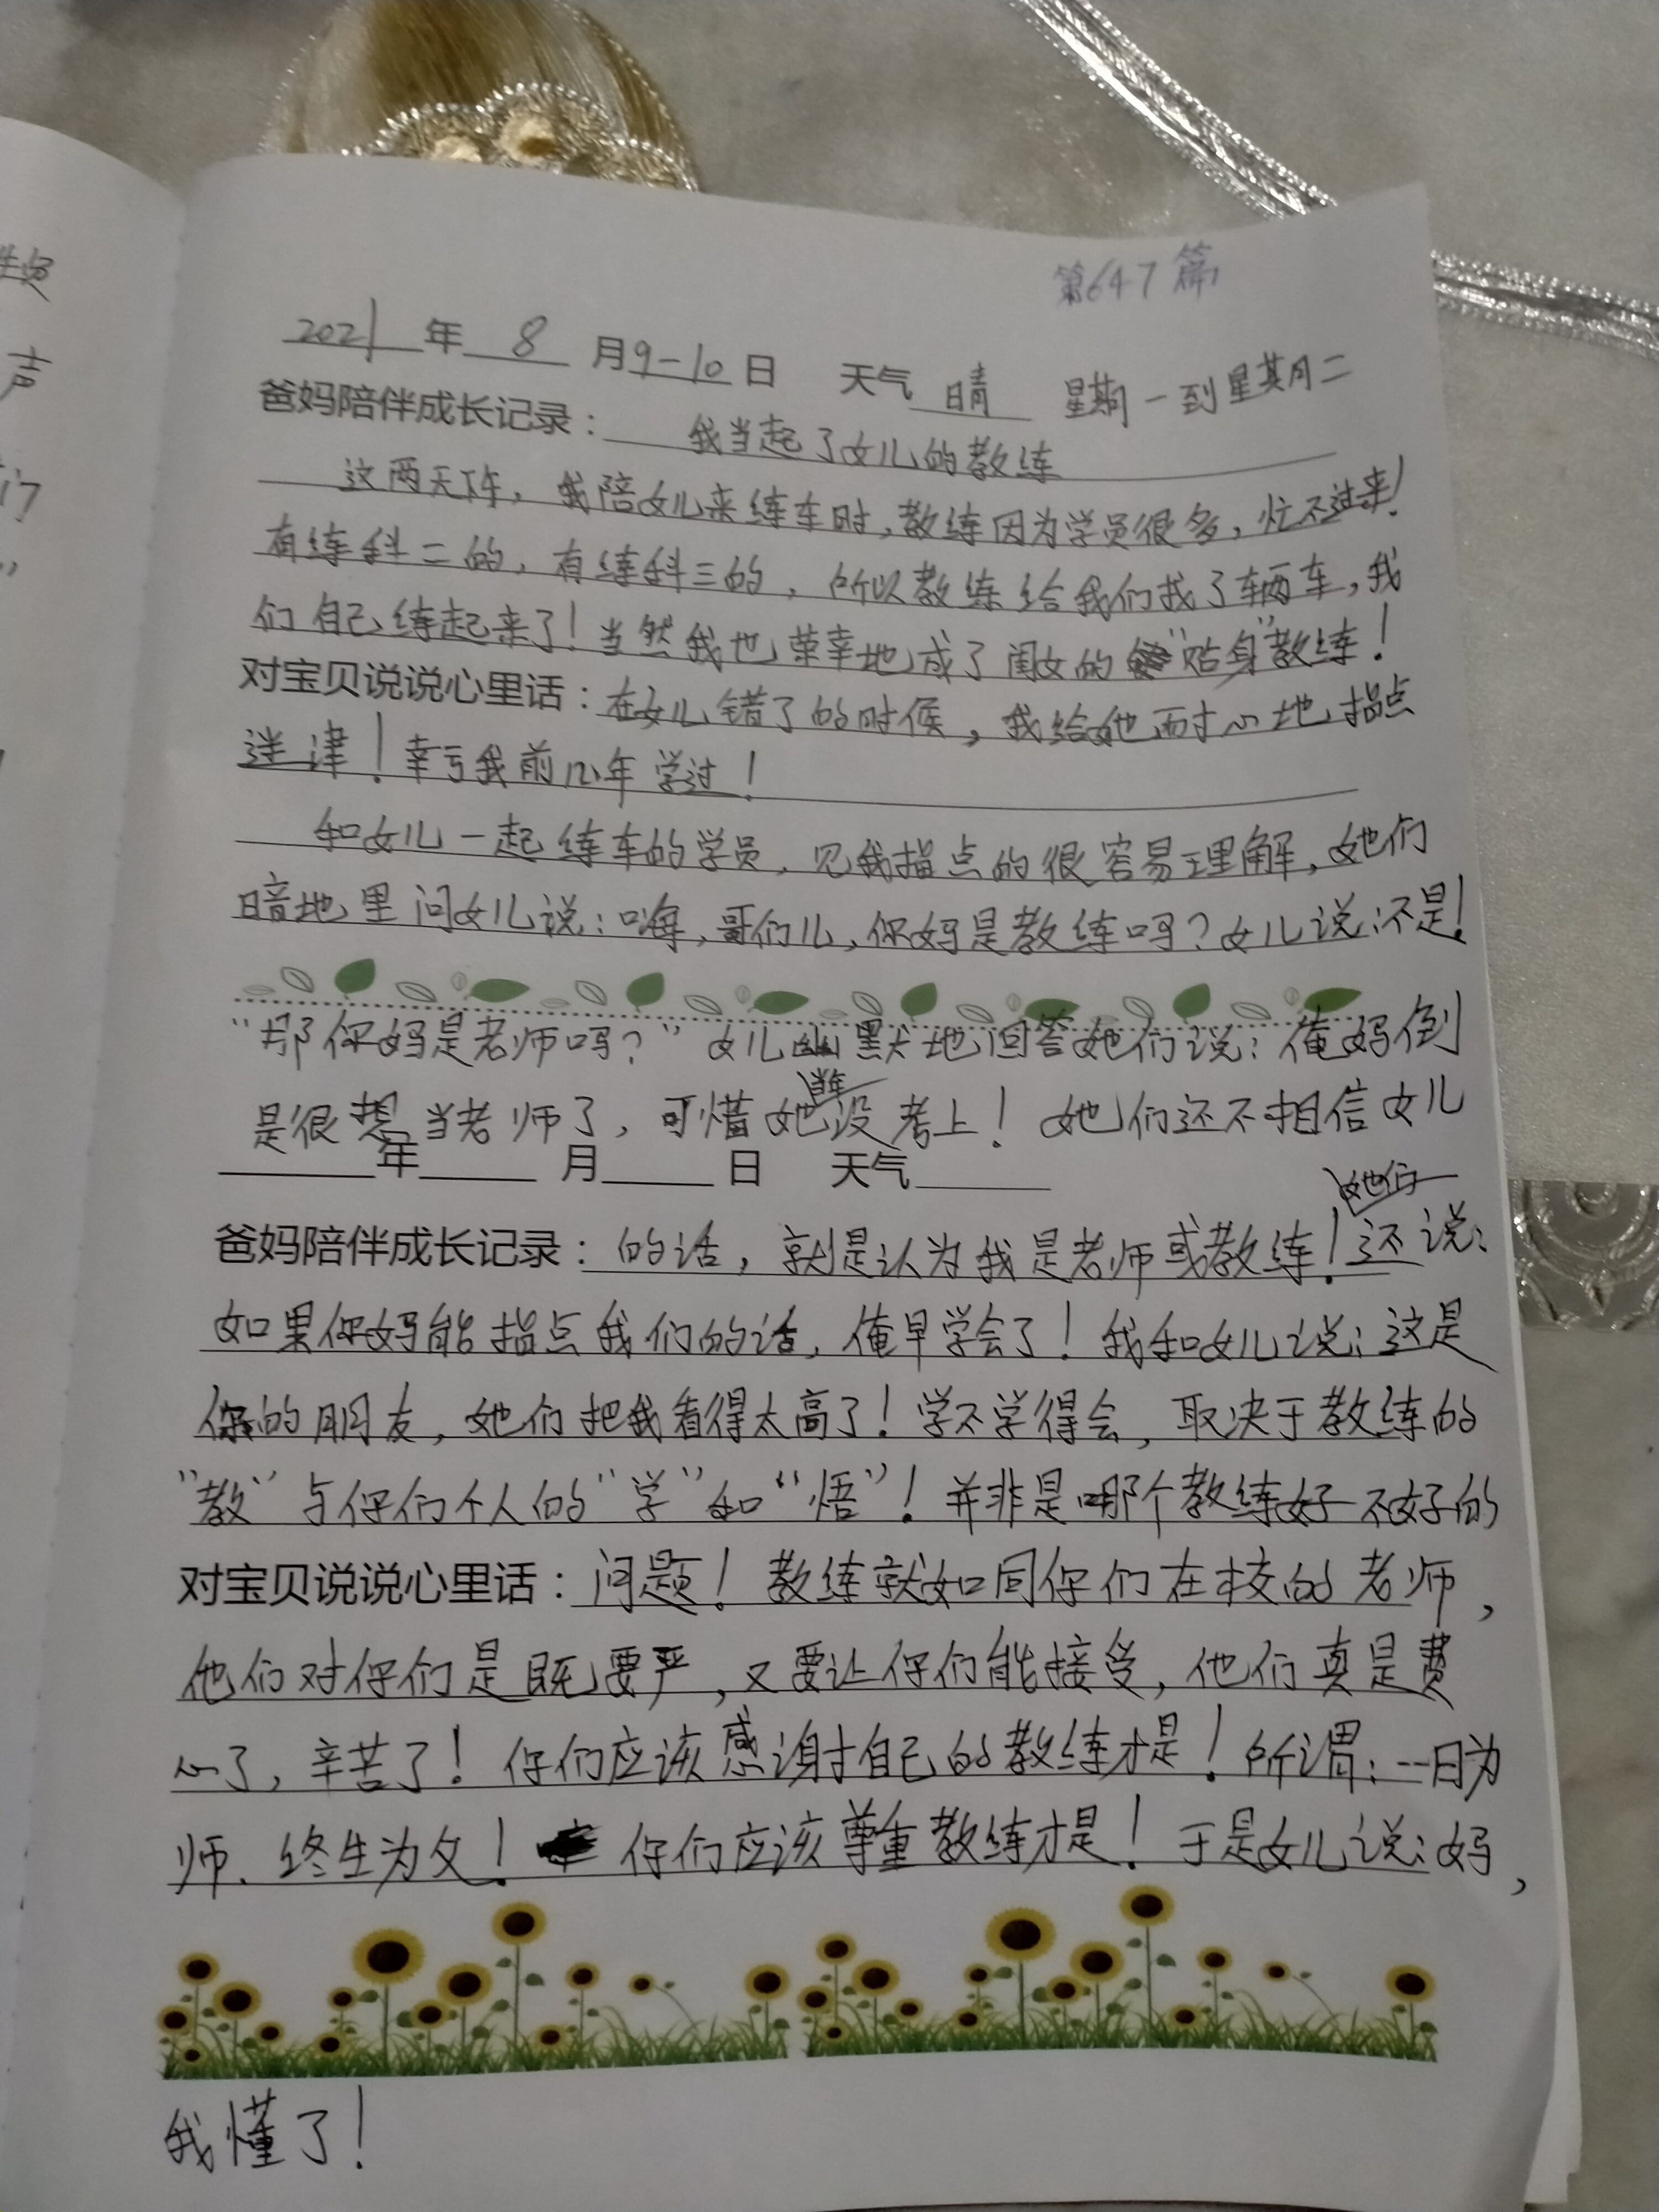 第647篇
2021年8月9-10日 天气 晴 星期一到星期二
爸妈陪伴成长记录: 我当起了女儿的教练
这两天下午,我陪女儿来练车时,教练因为学员很多,忙不过来!
有练科二的,有练科三的,所以教练给我们找了辆车,我
们自己练起来了!当然我也荣幸地成了闺女的"贴身"教练!
对宝贝说说心里话:在女儿错了的时候,我给她耐心地指点
迷津!幸亏我前几年学过!
和女儿一起练车的学员,见我指点的很容易理解,她们
暗地里问女儿说:嗨,哥们儿,你妈是教练吗?女儿说:不是!
"那你妈是老师吗?"女儿幽默地回答她们说:俺妈倒
是很想当老师了,可惜她当年没考上!她们还不相信女儿
年 月 日 天气
爸妈陪伴成长记录:的话,就是认为我是老师或教练!她们还说:
如果你妈能指点我们的话,俺早学会了!我和女儿说:这是
你的朋友,她们把我看得太高了!学不学得会,取决于教练的
"教"与你们个人的"学"和"悟"!并非是哪个教练好不好的
对宝贝说说心里话:问题!教练就如同你们在校的老师,
他们对你们是既要严,又要让你们能接受,他们真是费
心了,辛苦了!你们应该感谢自己的教练才是!所谓:一日为
师.终生为父!你们应该尊重教练才是!于是女儿说:妈,
我懂了!